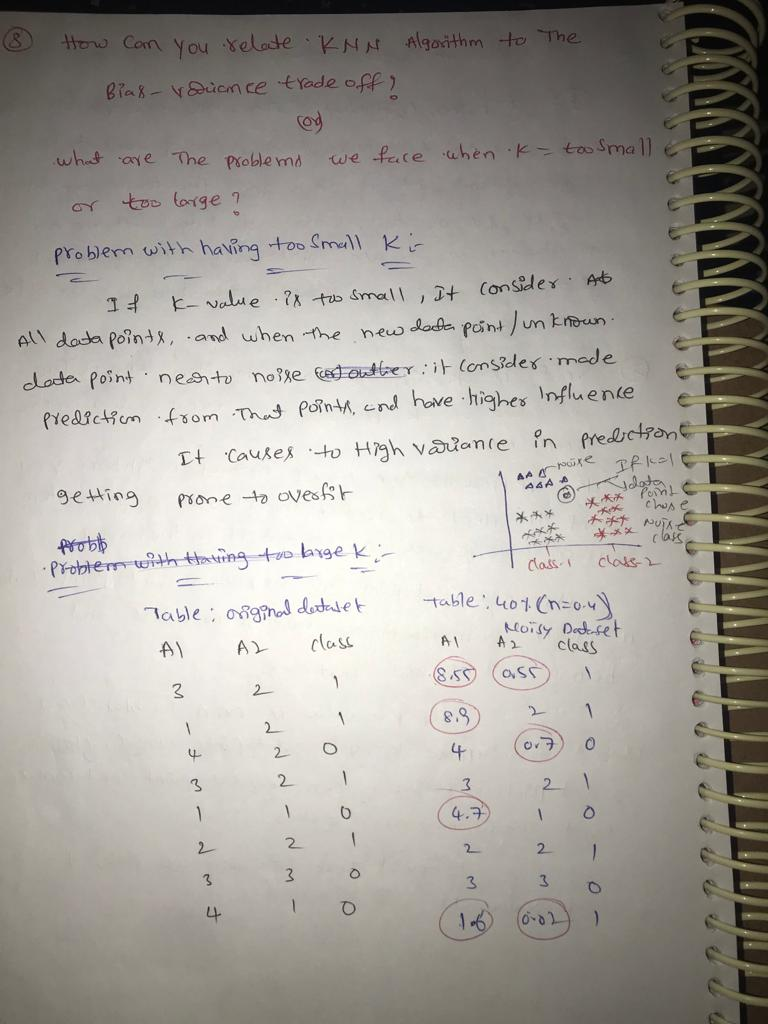 8 How Can you relate KNN Algorithm to The
Bias-variance trade off?
(or)
what are The problems we face when K = too small
or too large?
problem with having too small K:-
If K-value is too small, It consider
All data points, and when the new data point/unknown
data point near to noise (or) outlier: it consider made
prediction from That points, and have higher Influence
It causes to High variance in prediction
getting prone to overfit
noise If k=1
data
point
chose
noise
class
class-1 class-2
probl
problem with Having too large K:-
Table: original dataset
A1 A2 class
3 2 1
1 2 1
4 2 0
3 2 1
1 1 0
2 2 1
3 3 0
4 1 0
Table: 40% (n=0.4)
Noisy Dataset
A1 A2 class
8.55 0.55 1
8.9 2 1
4 0.7 0
3 2 1
4.7 1 0
2 2 1
3 3 0
1.6 0.02 1